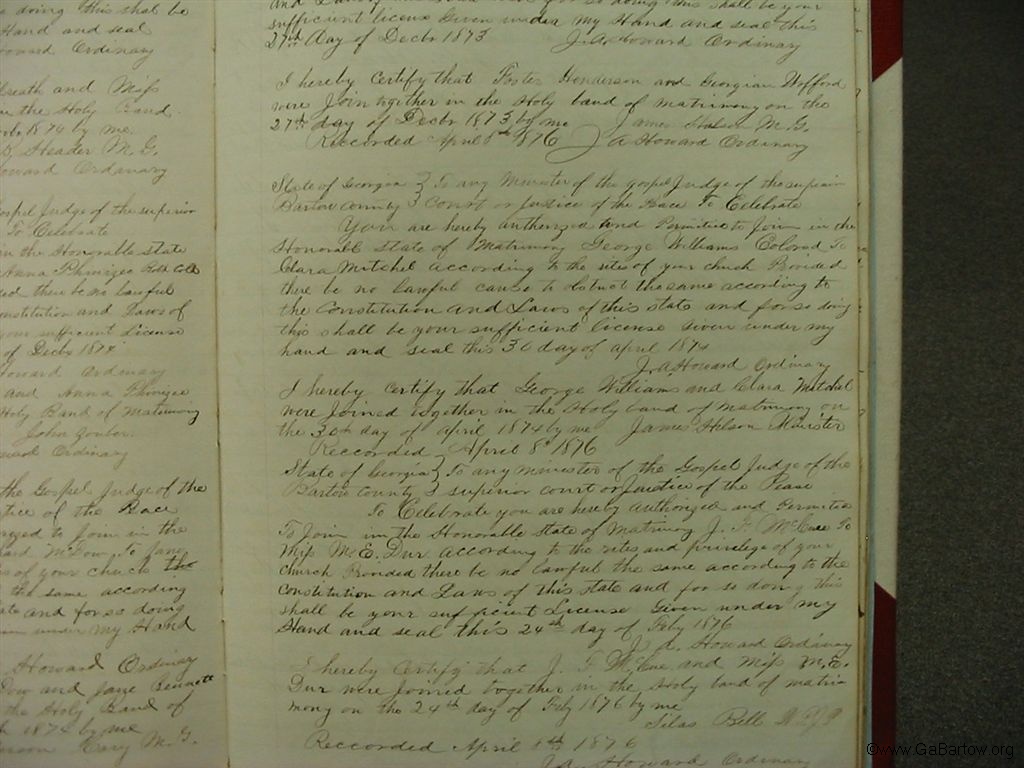 doing this shal be
Hand and seal
Howard Ordinary
and Miss
in the Holy Band
1874 by me
Header M. G.
Howard Ordinary
Gospel Judge of the superior
To Celebrate
in the Honorable state
Anna Phinizee Both Col
there be no lawful
Constitution and Laws of
your sufficient license
of Decbr 1874
Howard Ordinary
and Anna Phinizee
Holy Band of Matrimony
John
Howard Ordinary
the Gospel Judge of the
of the Peace
to Join in the
To Jane
of your church the
the same according
and for so doing
under my Hand
Howard Ordinary
and Jane Bennett
the Holy Band of
1874 by me
Cary M. G.
and Laws for so doing this shall be your
sufficient license Given under my Hand and seal this
27th Day of Decbr 1873 J. A. Howard Ordinary
I hereby Certify that Foster Henderson and Georgian Wofford
were Join together in the Holy band of matrimony on the
27th day of Decbr 1873 by me James M. G.
Reccorded April 8th 1876 J A Howard Ordinary
State of Georgia } To any Minister of the gospel Judge of the superior
Bartow County } Court or Justice of the Peace To Celebrate
You are hereby autherized and Permitted to Join in the
Honorabl state of Matrimony George Williams Colored To
Clara Mitchel according to the rites of your church Provided
there be no lawful cause to obstruct the same according to
the Constitution and Laws of this state and for so doing
this shall be your sufficient license Given under my
hand and seal this 30 day of april 1874
J. A. Howard Ordinary
I hereby Certify that George Williams and Clara Mitchel
were Joined together in the Holy band of Matrimony on
the 30th day of april 1874 by me James
Reccorded April 8th 1876
State of Georgia } To any minister of the Gospel Judge of the
Bartow County } superior court or Justice of the Pease
To Celebrate you are hereby Authorized and Permitted
To Join in the Honorable State of Matrimony J. F. McCue To
Miss M. E. Dur according to the rites and privilege of your
church Provided there be no lawful the same according to the
Constitution and Laws of this state and for so doing this
shall be your sufficient License Given under my
Hand and seal this 24th day of Feby 1876
J. A. Howard Ordinary
I hereby Certify that J. F. McCue and Miss M. E.
Dur were Joined together in the Holy band of matri
mony on the 24th day of Feby 1876 by me
Silas Bell N.P.J.P.
Reccorded April 8th 1876
J. A. Howard Ordinary
©www.GaBartow.org